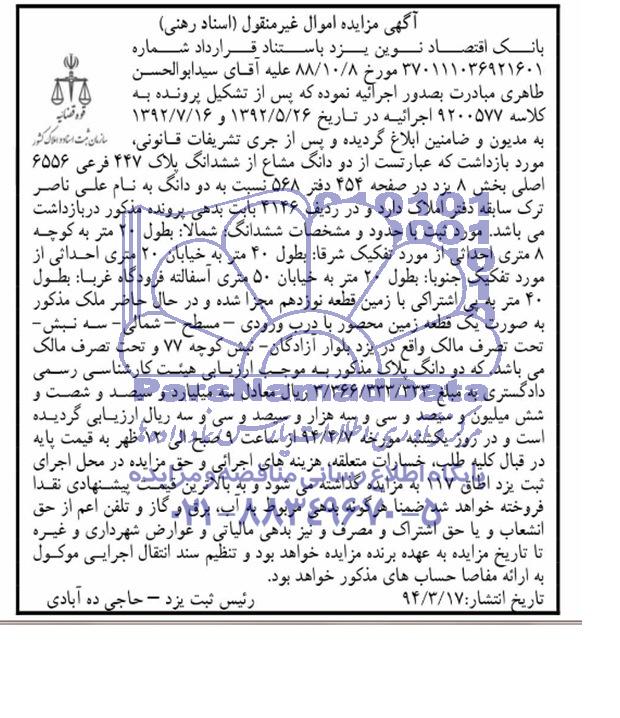 آگهی مزایده اموال غیرمنقول (اسناد رهنی)
بانک اقتصاد نوین یزد باستناد قرارداد شماره
۳۷۰۱۱۱۰۳۶۹۲۱۶۰۱ مورخ ۸۸/۱۰/۸ علیه آقای سیدابوالحسن
طاهری مبادرت بصدور اجرائیه نموده که پس از تشکیل پرونده به
کلاسه ۹۲۰۰۵۷۷ اجرائیه در تاریخ ۱۳۹۲/۵/۲۶ و ۱۳۹۲/۷/۱۶
به مدیون و ضامنین ابلاغ گردیده و پس از جری تشریفات قانونی،
قوه قضائیه
سازمان ثبت اسناد و املاک کشور
مورد بازداشت که عبارتست از دو دانگ مشاع از ششدانگ پلاک ۴۴۷ فرعی ۶۵۵۶
اصلی بخش ۸ یزد در صفحه ۴۵۴ دفتر ۵۶۸ نسبت به دو دانگ به نام علی ناصر
ترک سابقه دفتر املاک دارد و در ردیف ۴۱۴۶ بابت بدهی پرونده مذکور دربازداشت
می باشد. مورد ثبت با حدود و مشخصات ششدانگ: شمالا: بطول ۲۰ متر به کوچه
۸ متری احداثی از مورد تفکیک شرقا: بطول ۴۰ متر به خیابان ۲۰ متری احداثی از
مورد تفکیک جنوبا: بطول ۲۰ متر به خیابان ۵۰ متری آسفالته فرودگاه غربا: بطول
۴۰ متر به پی اشتراکی با زمین قطعه نوزدهم مجزا شده و در حال حاضر ملک مذکور
به صورت یک قطعه زمین محصور با درب ورودی – مسطح – شمالی- سه نبش-
تحت تصرف مالک واقع در یزد بلوار آزادگان- نبش کوچه ۷۷ و تحت تصرف مالک
می باشد. که دو دانگ پلاک مذکور به موجب ارزیابی هیئت کارشناسی رسمی
دادگستری به مبلغ ۳/۳۶۶/۳۳۳/۳۳۳ ریال معادل سه میلیارد و سیصد و شصت و
شش میلیون و سیصد و سی و سه هزار و سیصد و سی و سه ریال ارزیابی گردیده
است و در روز یکشنبه مورخه ۹۴/۴/۷ از ساعت ۹ صبح الی ۱۲ ظهر به قیمت پایه
در قبال کلیه طلب، خسارات متعلقه، هزینه های اجرائی و حق مزایده در محل اجرای
ثبت یزد اطاق ۱۱۷ به مزایده گذاشته می شود و به بالاترین قیمت پیشنهادی نقدا
فروخته خواهد شد ضمنا هرگونه بدهی مربوط به آب، برق و گاز و تلفن اعم از حق
انشعاب و یا حق اشتراک و مصرف و نیز بدهی مالیاتی و عوارض شهرداری و غیره
تا تاریخ مزایده به عهده برنده مزایده خواهد بود و تنظیم سند انتقال اجرایی موکول
به ارائه مفاصا حساب های مذکور خواهد بود.
تاریخ انتشار: ۹۴/۳/۱۷ رئیس ثبت یزد – حاجی ده آبادی
ParsNamadData
پایگاه اطلاع رسانی مناقصه و مزایده
۰۲۱-۸۸۳۴۹۶۷۰-۵